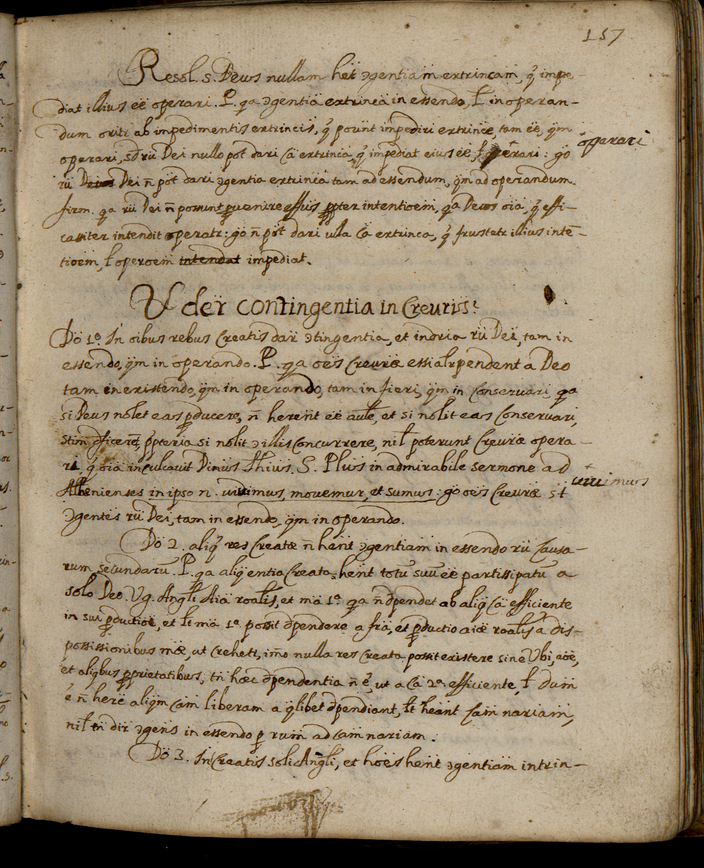 157
Resol. s. Deus nullam het ɔgentiam extrincam, q̃ impe-
diat illius eē operari. P. qa ɔgentia extrinca in essendo, ł in operan-
dum oritr ab impedimentis extrincis, q̃ pount impediri extrince, tam eē, qm̃
operari, sd rū Dei nullo pot dari Cã extrinca, q̃ impediat eius eē, ł operari: go operari
rū Dei ñ pot dari ɔgentia extrinca tam ad essendum, qm̃ ad operandum.
firm. qa rū Dei ñ possunt puenire effūs ppter intentioem, qa Deus oia, q̃ effi-
caciter intendit operatr: go ñ pot dari ulla Cã extrinca, q̃ frustetr illius inte-
tioem, ł operoem intendat impediat.
V der contingentia in Creuris:
Dõ 1º In oibus rebus Creatis dari ɔtingentia, et in oria rū Dei, tam in
essendo, qm̃ in operando. P. qa oēs Creuræ essialr pendent a Deo
tam in existendo, qm̃ in operando, tam in fieri, qm̃ in Conservari qa
si Deus nolet eas pducere, ñ herent eē aule, et si nolit eas Conservari,
stim dficerēt, ppteria si nolit ɔ illis Concurrere, nil poterunt Creuræ opera-
ri, q oia inculcavit Divus Thius. S. Plus in admirabile sermone ad
Athenienses in ipso n. uivimus, movemur, et sumus: go oēs Creuræ st uivimus
ɔgentes rū Dei, tam in essendo, qm̃ in operando.
Dõ 2. aliq̃ res Creatæ ñ hent ɔgentiam in essendo rū Causa-
rum secundaru. P. qa aliq̃ entia Creata hent totu suū eē partissipatu a
solo Deo. Vg. Angli Aia roalis, et mã 1ª qa ñ dpendet ab aliq̃ Cã efficiente
in sui pductioe, et lt mã 1ª possit dpendere a frã, et pductio aiæ roalis a dis-
possissionibus mæ, ut crehett, imo nulla res creata possit existere sine Vbi, aoē,
et aliqbus pprietatibus, tñ hæc dpendentia ñ ē, ut a Cã 2ª efficiente, ł dum
ē ñ herē aliqm cam liberam a qlibet dpendiant, lt heant Cam nariam,
nil tñ dir ɔgens in essendo p rum ad Cam nariam.
Dõ 3. In Creatis soli Angli, et hoēs hent ɔgentiam intrin-